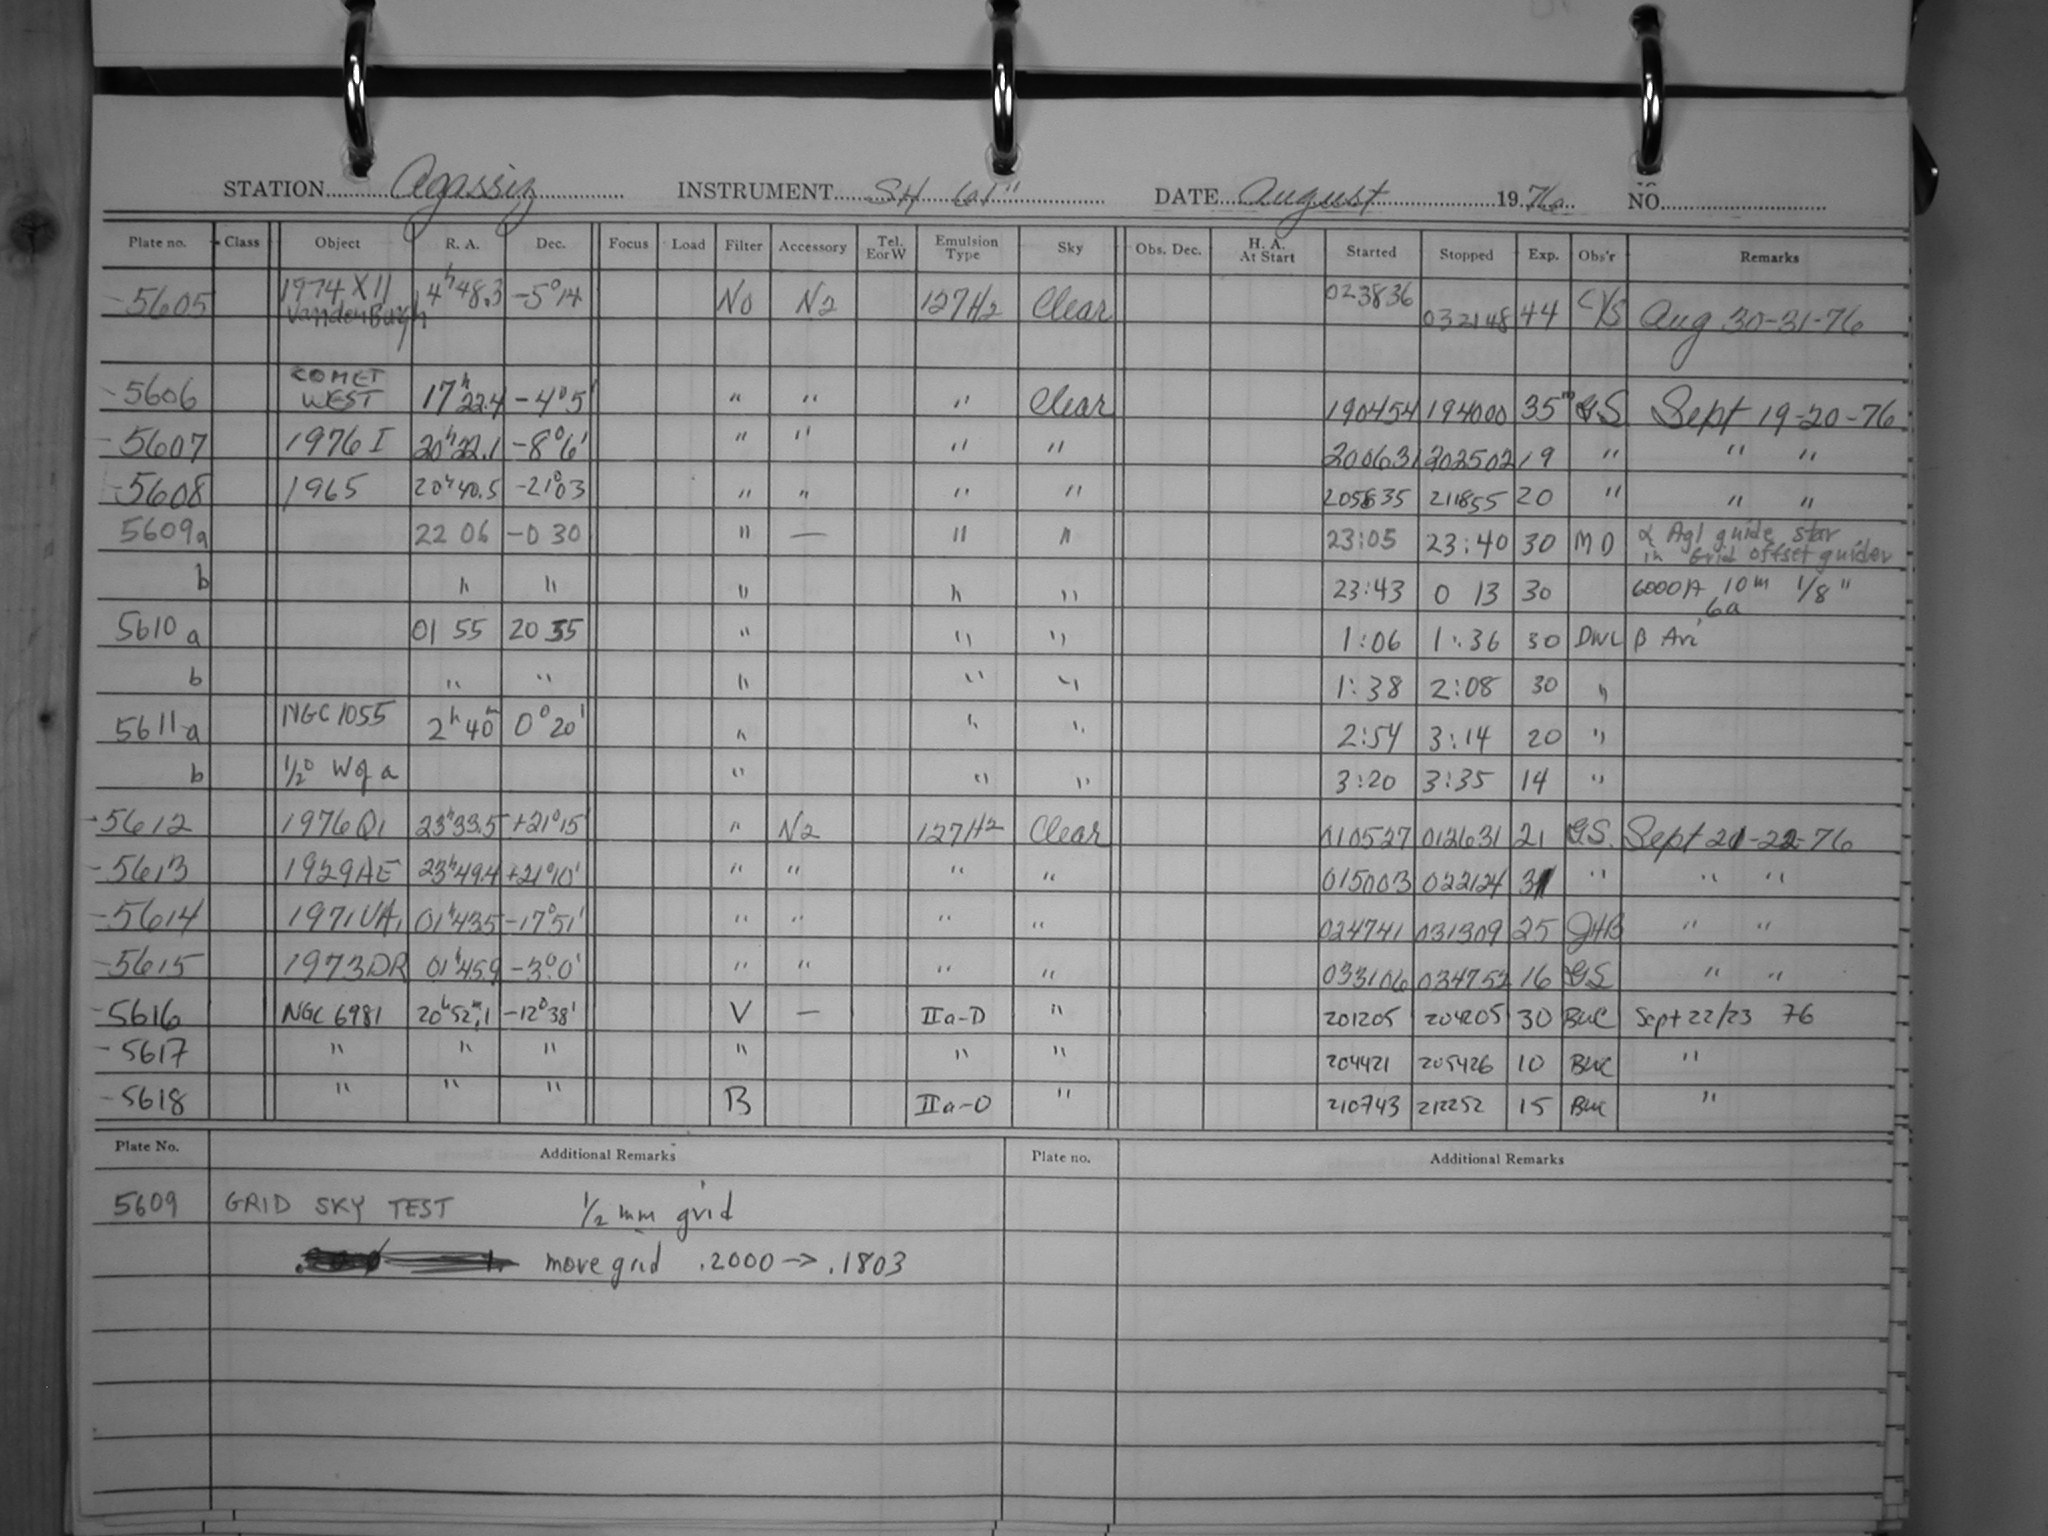 STATION Agassiz INSTRUMENT SH 61" DATE August 1976 NO.
Plate no. Class Object R. A. Dec. Focus Load Filter Accessory Tel. E or W Emulsion Type Sky Obs. Dec. H. A. At Start Started Stopped Exp. Obs'r Remarks
5605 1974 XII VandenBurgh 14ʰ48.3 -5°14 No N2 127H2 Clear 023836 032148 44 C/S Aug 30-31-76
5606 COMET WEST 17ʰ22.4 -4°5' " " " Clear 190454 194000 35ᵐ GS Sept 19-20-76
5607 1976 I 20ʰ22.1 -8°6' " " " " 200631 202502 19 " " "
5608 1965 20ʰ40.5 -21°03 " " " " 205835 211855 20 " " "
5609a 22 06 -0 30 " — " " 23:05 23:40 30 MD α Aql guide star in Grid offset guider
b " " " " " 23:43 0 13 30 6000A 10m 1/8" 6a
5610a 01 55 20 35 " " " 1:06 1:36 30 DWL β Ari
b " " " " " 1:38 2:08 30 "
5611a NGC 1055 2ʰ40ᵐ 0°20' " " " 2:54 3:14 20 "
b 1/2° W of a " " " 3:20 3:35 14 "
5612 1976 Q1 23ʰ33.5 +21°15' " N2 127H2 Clear 010527 012631 21 GS. Sept 21-22-76
5613 1929AE 23ʰ49.4 +21°10' " " " " 015003 022124 31 " " "
5614 1971UA1 01ʰ43.5 -17°51' " " " " 024741 031309 25 JHB " "
5615 1973DR 01ʰ45.9 -3°0' " " " " 033106 034752 16 GS " "
5616 NGC 6981 20ʰ52ᵐ.1 -12°38' V — IIa-D " 201205 204205 30 BWC Sept 22/23 76
5617 " " " " " " 204421 205426 10 BWC "
5618 " " " B IIa-O " 210743 212252 15 BWC "
Plate No. Additional Remarks Plate no. Additional Remarks
5609 GRID SKY TEST 1/2 mm grid
move grid .2000 → .1803